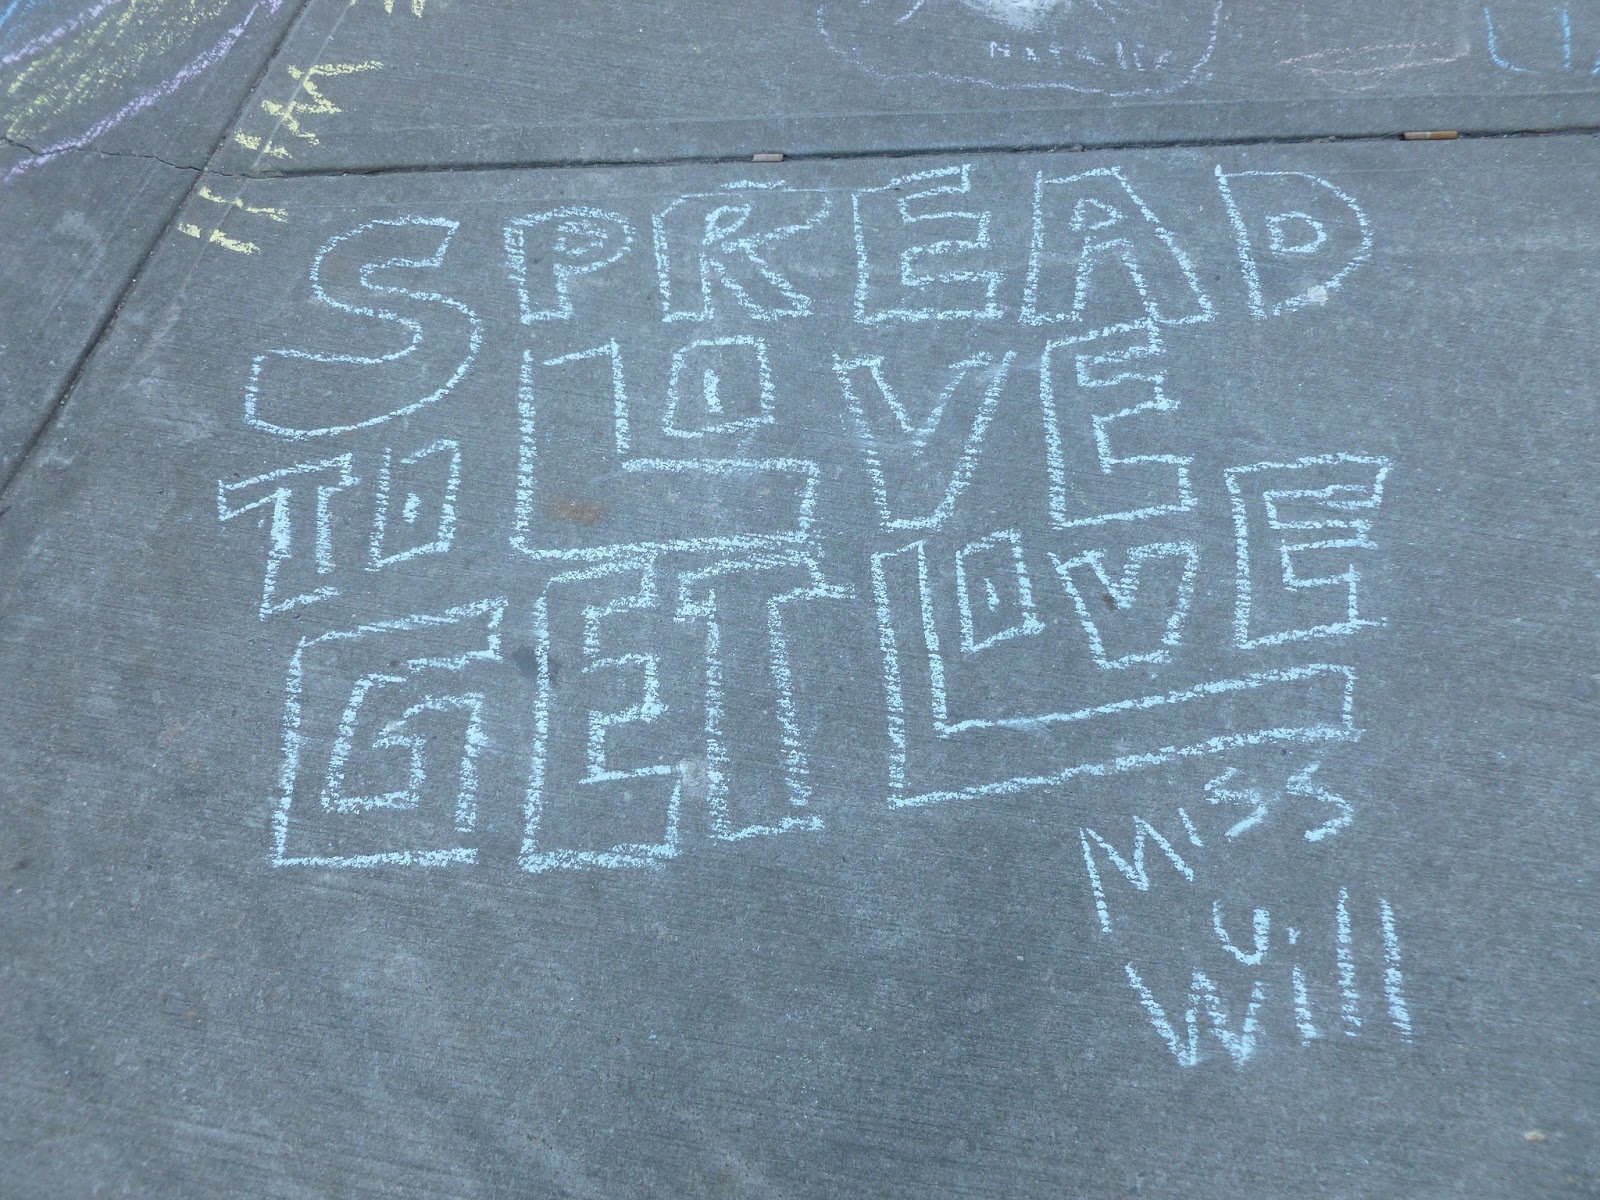 Natalie
SPREAD
LOVE
TO
GET LOVE
MISS
U
Will